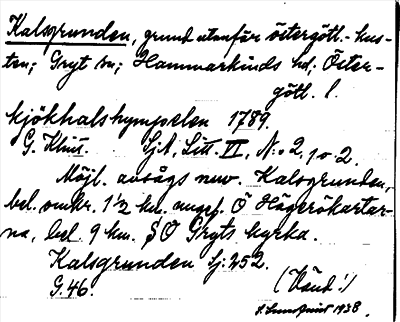 Kalsgrunden, grund utanför östergötl.-kus-
ten; Gryt sn; Hammarkinds hd, Öster-
götl. l.
kjökhalshympelen 1789.
G. Klint. Sj.A, Litt. VI, N:o 2, 1 o 2.
Möjl. avsågs nuv. Kalsgrunden,
bel. omkr. 1 1/2 km. angef. Ö Hägerökartar-
na, bel. 9 km. SO Gryts kyrka.
Kalsgrunden Sj: 252.
G. 46.
(Vänd!)
S. Lundquist 1938.